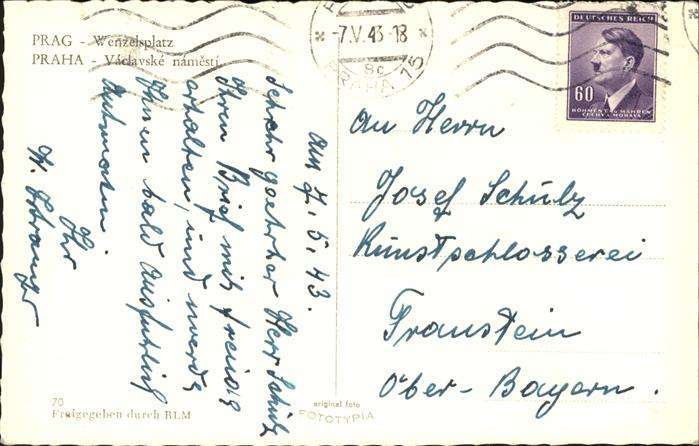 PRAG - Wenzelsplatz
PRAHA - Václavské náměstí
-7.V.43-18
8c
PRAHA 75
DEUTSCHES REICH
60
BÖHMEN U. MÄHREN
ČECHY A MORAVA
Am 7.5.43.
Sehr geehrter Herr Schülz
Ihren Brief mit freude
erhalten, und werde
Ihnen bald Ausführlig
Antworten.
Ihr
An Herrn
Josef Schülz
Kunstschlosserei
Traunstein
Ober-Bayern.
70
Freigegeben durch RLM
original foto
FOTOTYPIA